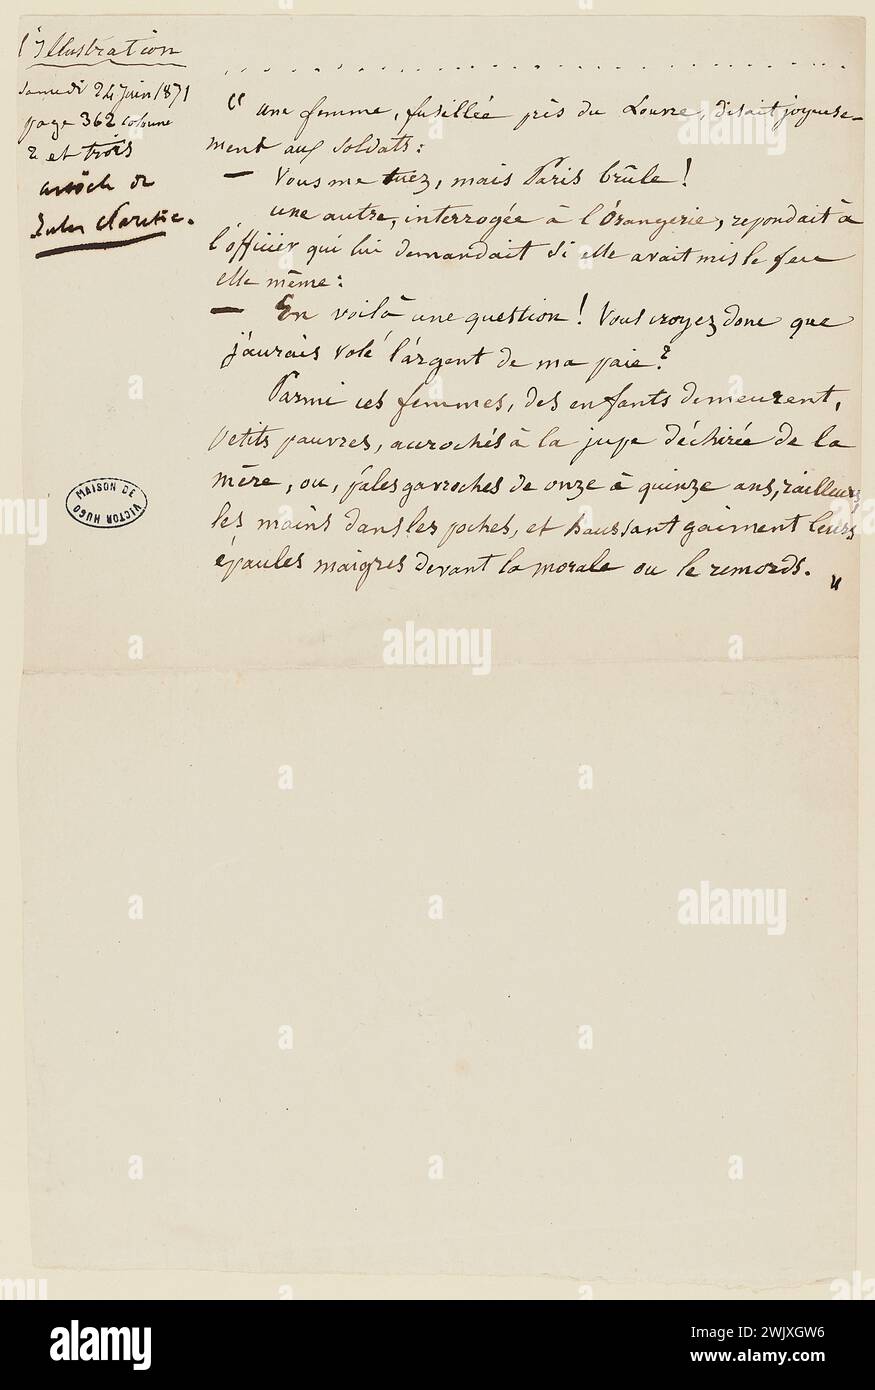 l'Illustration
samedi 24 juin 1871
page 362 colonne
2 et trois
article de
Jules Claretie.
. . . . . . . . . . . . . . . . . . . . . . . . . . . . . .
" une femme, fusillée près du Louvre, disait joyeuse-
ment aux soldats :
— Vous me tuez, mais Paris brûle !
une autre, interrogée à l'Orangerie, repondait à
l'officier qui lui demandait si elle avait mis le feu
elle même :
— En voilà une question ! Vous croyez donc que
j'aurais volé l'argent de ma paie ?
Parmi ces femmes, des enfants demeurent,
petits pauvres, accrochés à la jupe déchirée de la
mère, ou, pâles gavroches de onze à quinze ans, railleurs,
les mains dans les poches, et haussant gaiment leurs
épaules maigres devant la morale ou le remords. "
MAISON DE
VICTOR HUGO
alamy
alamy
Image ID: 2WJXGW6
www.alamy.com